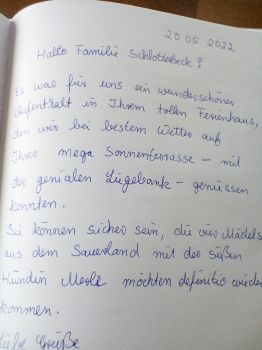 20.05.2022
Hallo Familie Schlotterbeck!
Es war für uns ein wunderschöner
Aufenthalt in Ihrem tollen Ferienhaus,
den wir bei bestem Wetter auf
Ihrer mega Sonnenterrasse - mit
der genialen Liegebank - geniessen
konnten.
Sie können sicher sein, die vier Mädels
aus dem Sauerland mit der süßen
Hündin Merle möchten definitiv wieder
kommen.
Liebe Grüße